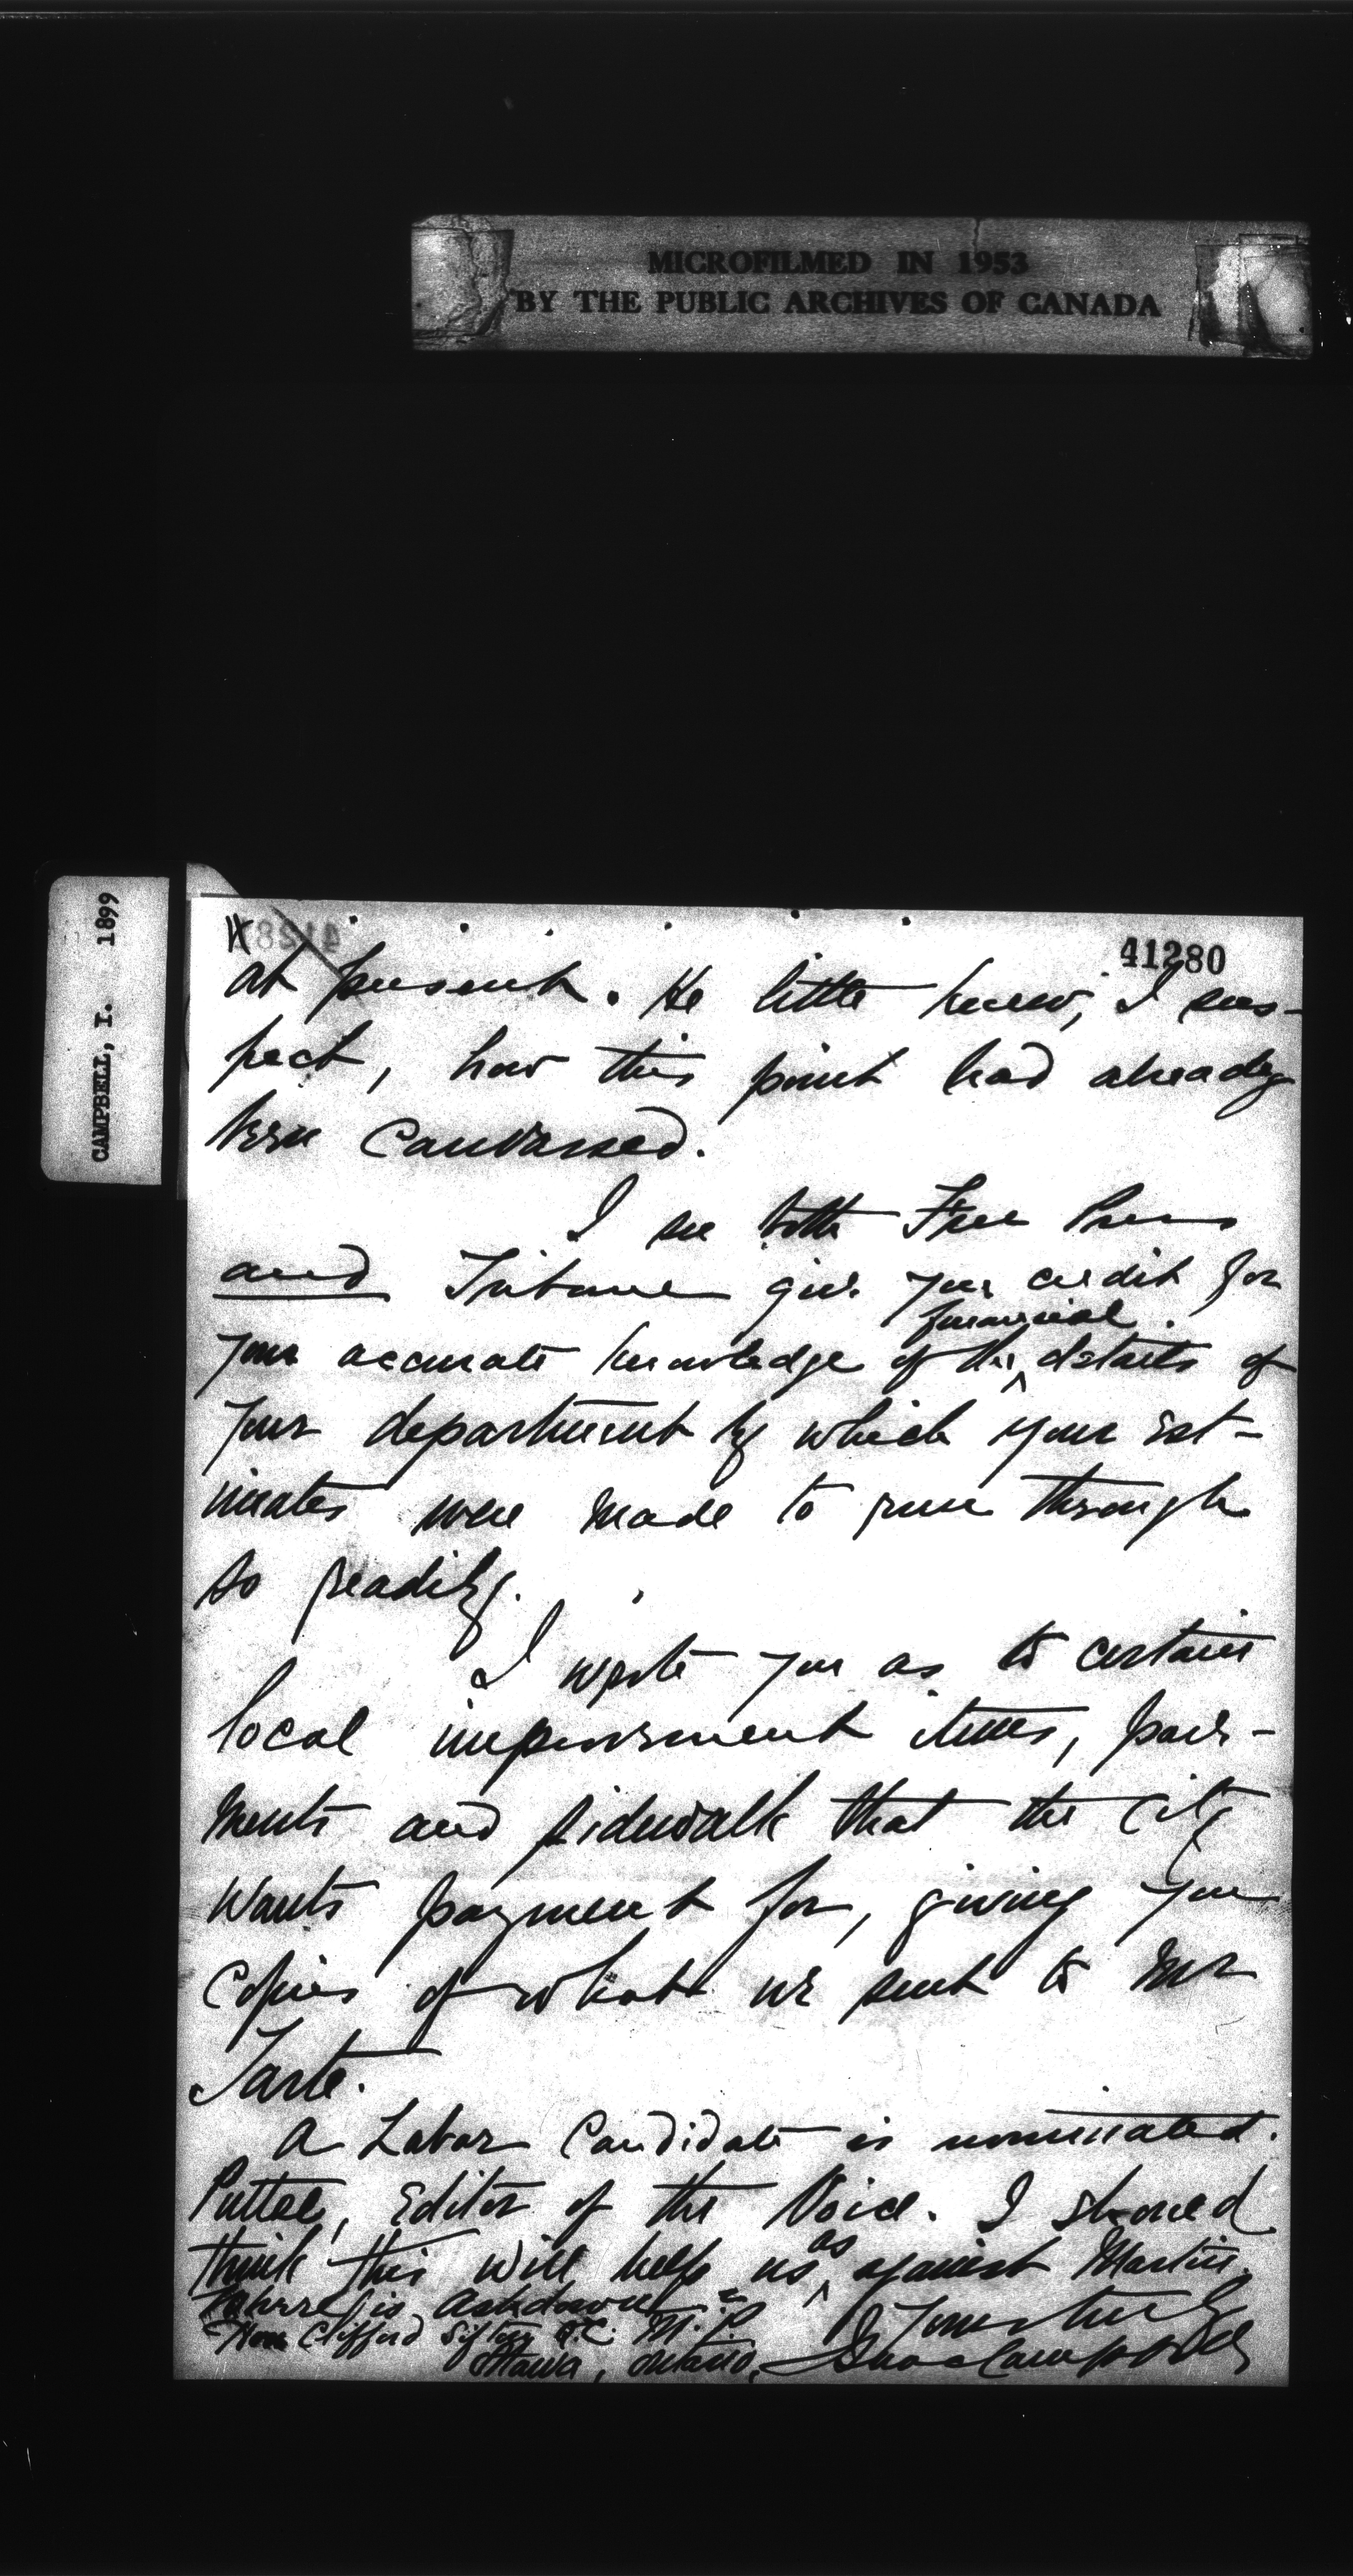 MICROFILMED IN 1953
BY THE PUBLIC ARCHIVES OF CANADA
CAMPBELL, I. 1899
4
41280
at present. He little knew, I sus-
pect, how this point had already
been canvassed.
I see both Free Press
and Tribune give you credit for
financial
your accurate knowledge of the details of
your department by which your est-
imates were made to run through
so readily.
I wrote you as to certain
local improvement items, pave-
ments and sidewalk that the city
wants payment for, giving you
copies of what we sent to Mr
Tarte.
A Labor Candidate is nominated.
Puttee, Editor of the Voice. I should
as
think this will help us against Martin.
Where is Ashdown?
Yours truly
Hon Clifford Sifton Q.C. M.P.
Ottawa, Ontario,
Isaac Campbell